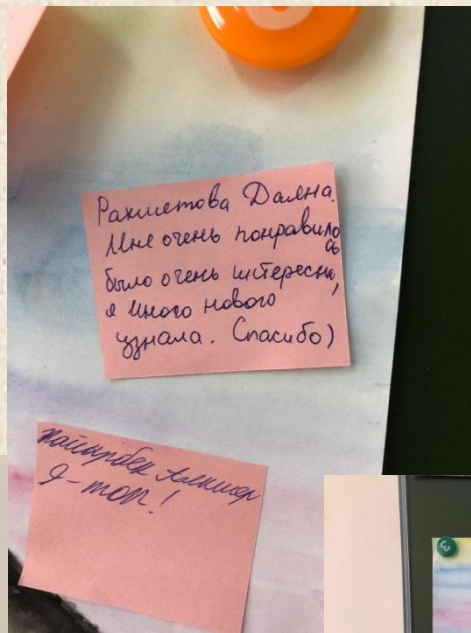 Рахметова Даяна.
Мне очень понравило
сь
было очень интересно,
я много нового
узнала. Спасибо)
Я - топ!